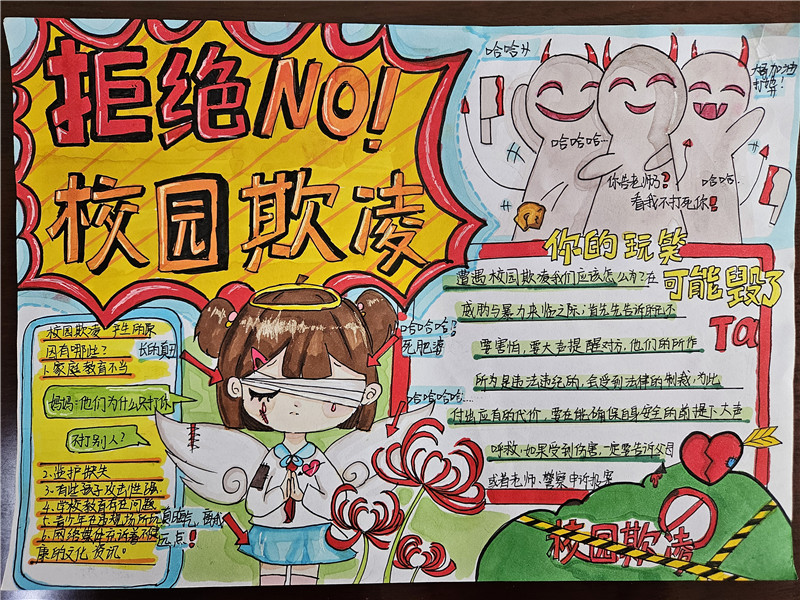 拒绝NO!
校园欺凌
哈哈
哈哈哈…
你告老师了?
看我不打死你!
哈哈…
你的玩笑
可能毁了
Ta
校园欺凌产生的原
因有哪些?
1.家庭教育不当
妈妈:他们为什么只打你
不打别人?
2.监护缺失
3.有些孩子攻击性强
4.学校教育存在问题
康的文化资讯。
长的真丑
哈哈哈!
死肥婆
哈哈哈哈…
离我
远点!
遭遇校园欺凌我们应该怎么办?在
威胁与暴力来临之际,首先告诉自己不
要害怕,要大声提醒对方,他们的所作
所为是违法违纪的,会受到法律的制裁,为此
付出应有的代价,要在能确保自身安全的前提下大声
呼救,如果受到伤害,一定要告诉父母
或者老师、警察申诉投案
校园欺凌